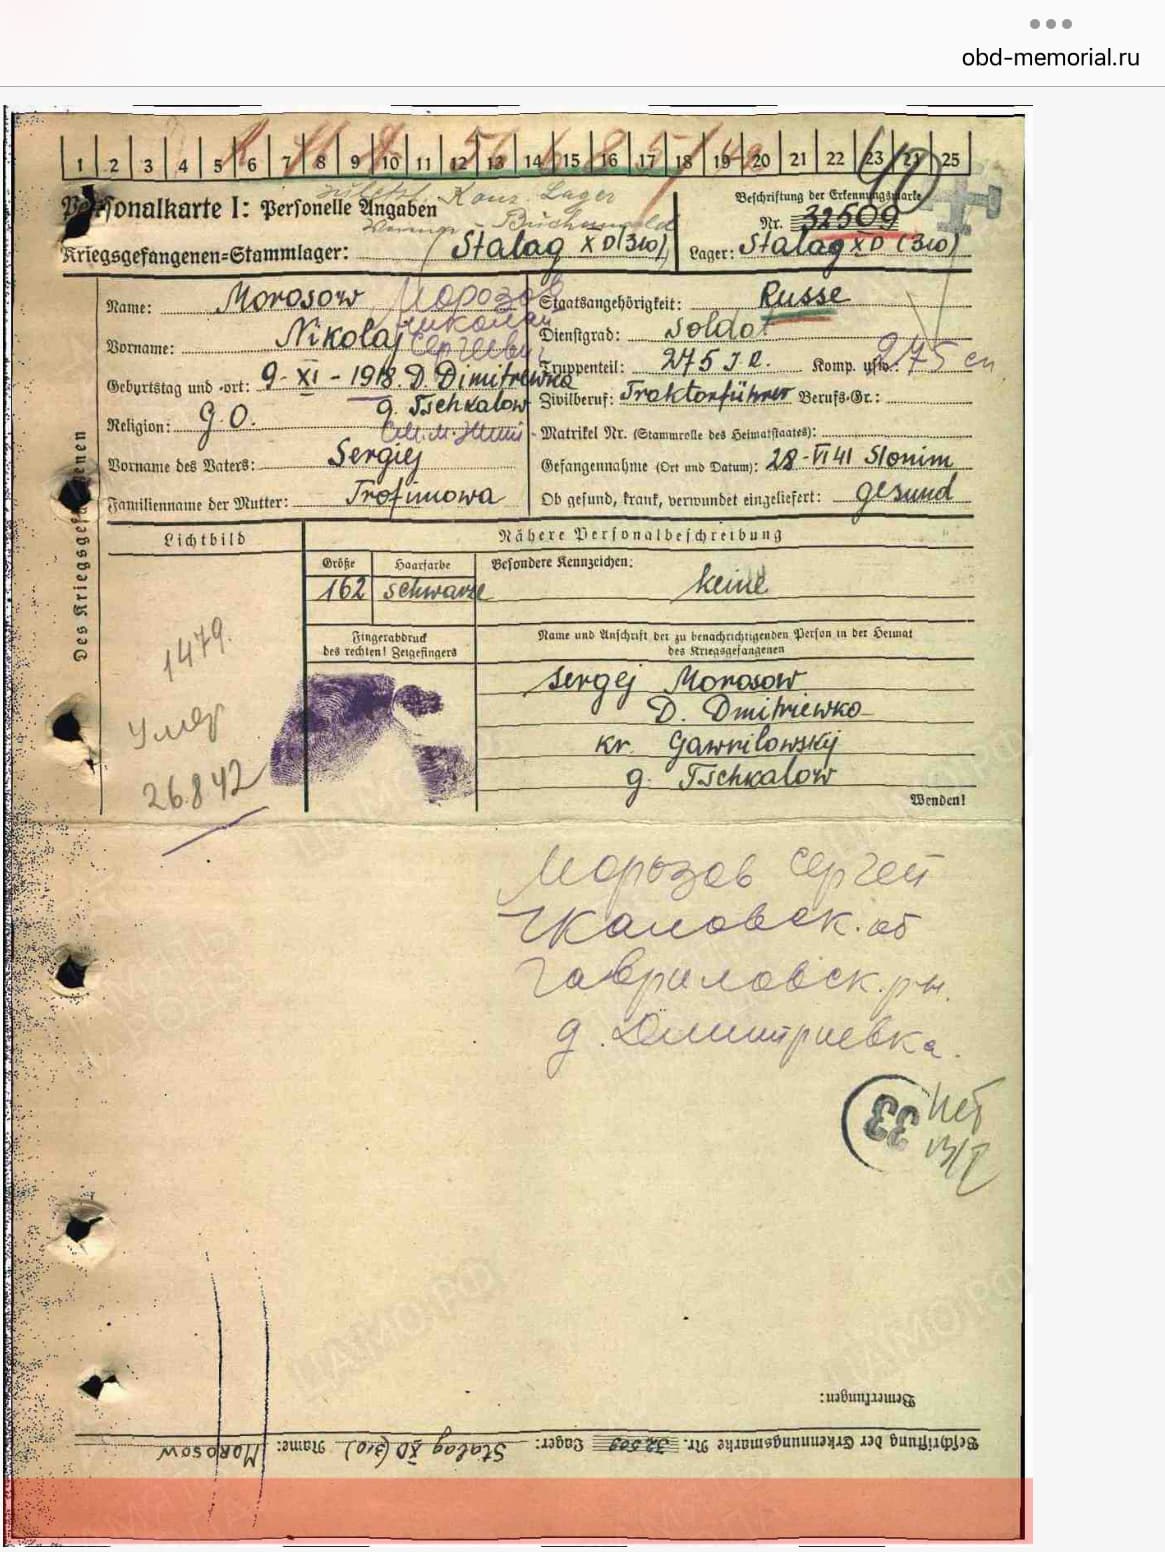 obd-memorial.ru
1 2 3 4 5 6 7 8 9 10 11 12 13 14 15 16 17 18 19 20 21 22 23 24 25
zuletzt Konz. Lager
Buchenwald
Personalkarte I: Personelle Angaben
Kriegsgefangenen-Stammlager: Stalag X D (310)
Beschriftung der Erkennungsmarke
Nr. 32509
Lager: Stalag X D (310)
Des Kriegsgefangenen
Name: Morosow Морозов
Vorname: Nikolaj Николай Сергеевич
Geburtstag und -ort: 9-XI-1918. D. Dimitrewka
g. Tschkalow
Religion: g.O.
Vorname des Vaters: Sergiej
Familienname der Mutter: Trofimowa
Staatsangehörigkeit: Russe
Dienstgrad: Soldat
Truppenteil: 275 I.R. Komp. usw.: 275 сп
Zivilberuf: Traktorführer Berufs-Gr.:
Matrikel Nr. (Stammrolle des Heimatstaates):
Gefangennahme (Ort und Datum): 28-VI 41 Slonim
Ob gesund, krank, verwundet eingeliefert: gesund
Lichtbild
Nähere Personalbeschreibung
Größe Haarfarbe Besondere Kennzeichen:
162 schwarze keine
Fingerabdruck
des rechten! Zeigefingers
Name und Anschrift der zu benachrichtigenden Person in der Heimat
des Kriegsgefangenen
Sergej Morosow
D. Dmitriewko
kr. Gawrilowskij
g. Tschkalow
Wenden!
1479.
Умер
26.8 42
Морозов Сергей
Чкаловск. об
Гавриловск. рн.
д. Дмитриевка.
33
Нет
Bemerkungen:
Beschriftung der Erkennungsmarke Nr. 32509 Lager: Stalag XD (310) Name: Morosow